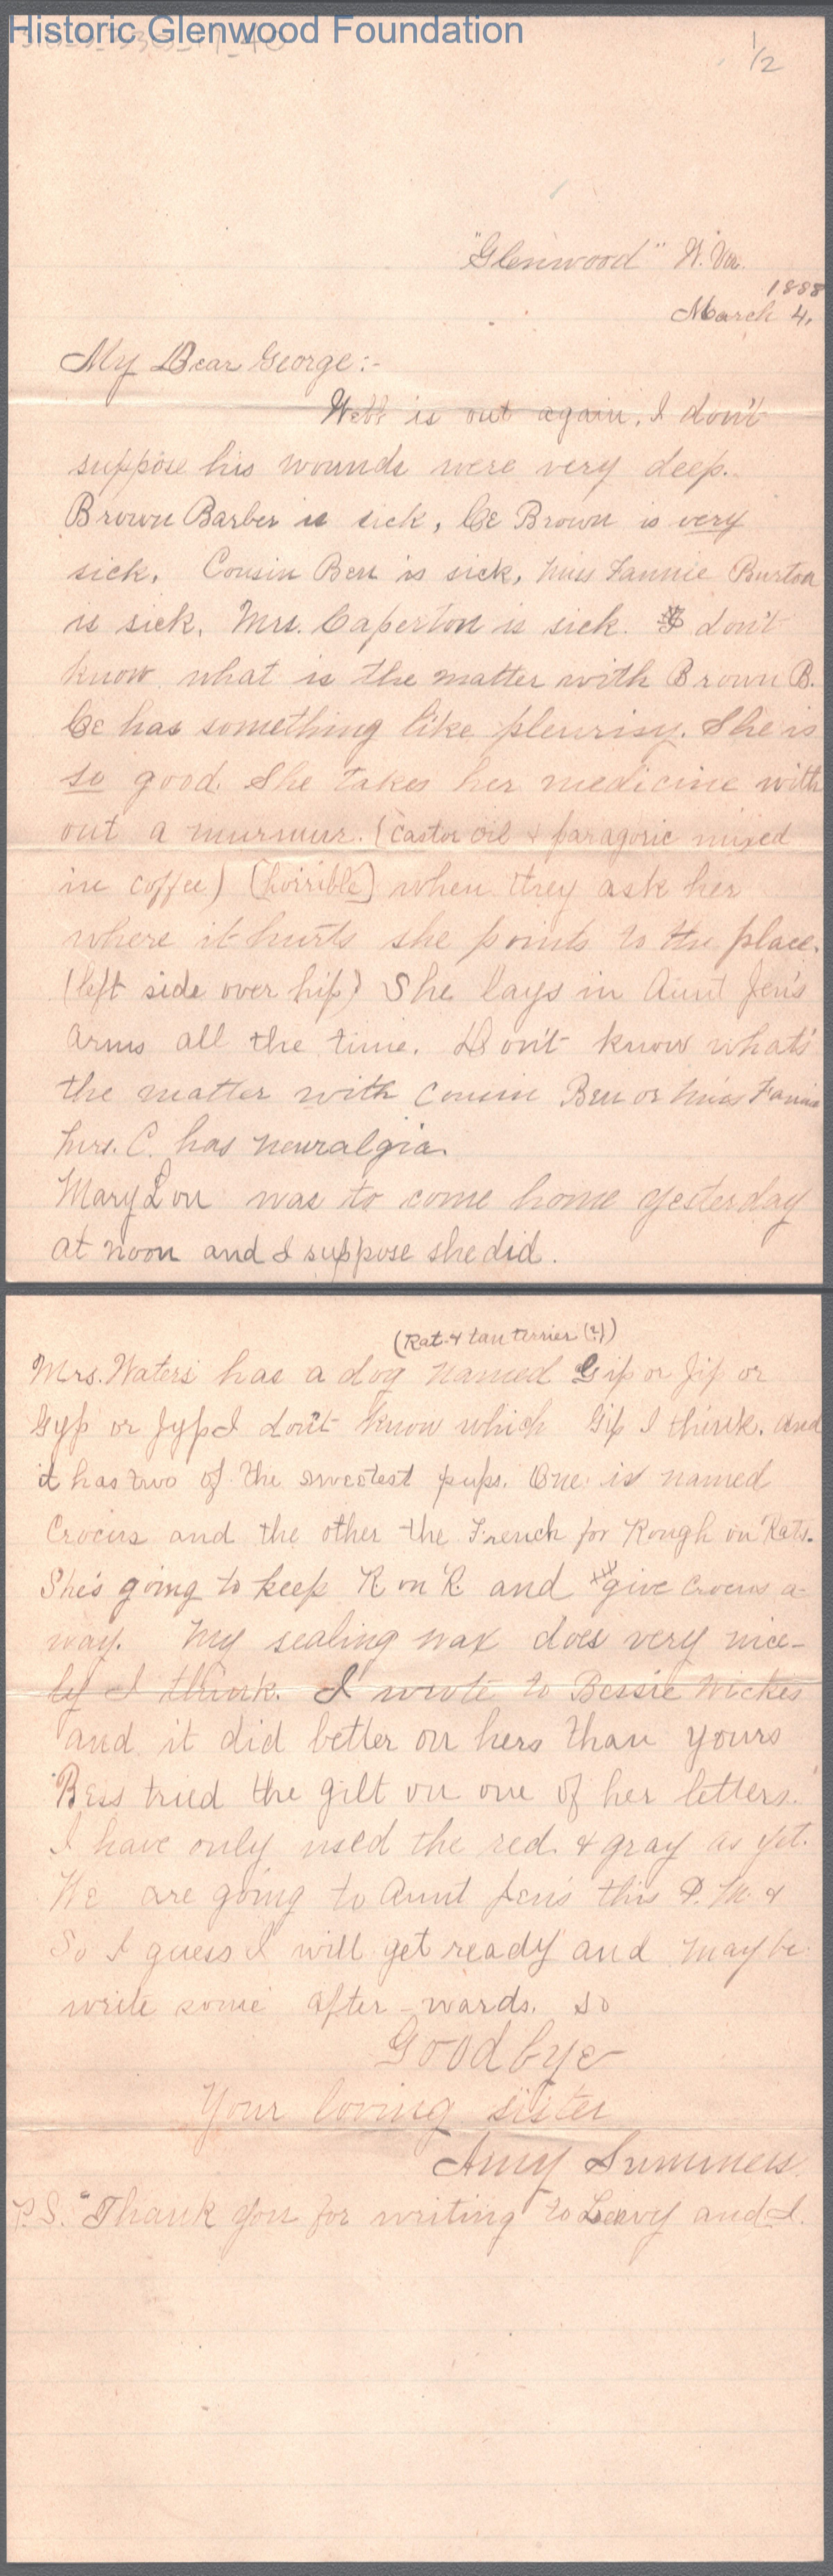 Historic Glenwood Foundation
1/2
"Glenwood" W. Va.
1888
March 4,
My Dear George:-
Webb is out again. I don't
suppose his wounds were very deep.
Brown Barber is sick, Ce Brown is very
sick. Cousin Ben is sick, Miss Fannie Burton
is sick, Mrs. Caperton is sick. I don't
know what is the matter with Brown B.
Ce has something like pleurisy. She is
so good. She takes her medicine with
out a murmur. (castor oil & paragoric mixed
in coffee) (horrible) when they ask her
where it hurts she points to the place.
(left side over hip) She lays in Aunt Jen's
arms all the time. Don't know what's
the matter with Cousin Ben or Miss Fannie
Mrs. C. has neuralgia.
Mary Lou was to come home yesterday
at noon and I suppose she did.
(Rat & tan terrier (?))
Mrs. Waters has a dog named Gip or Jip or
Gyp or Jyp I don't know which Gip I think. and
it has two of the sweetest pups. One is named
Crocus and the other the French for Rough on Rats.
She's going to keep R on R. and give Crocus a-
way. My sealing wax does very nice-
ly I think. I wrote to Bessie Wickes
and it did better on hers than yours
Bess tried the gilt on one of her letters.
I have only used the red & gray as yet.
We are going to Aunt Jen's this P.M. &
So I guess I will get ready and may be
write some after-wards. so
Goodbye
Your loving sister
Amy Summers
P.S. "Thank you for writing to Leavy and I.